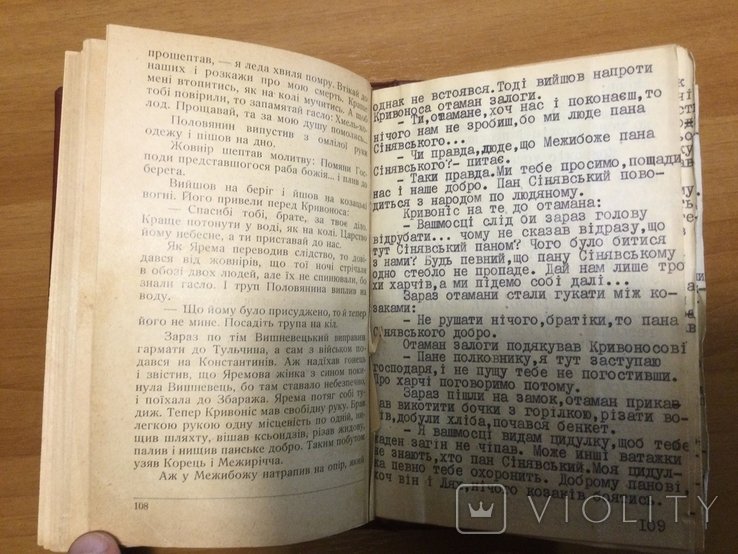 прошептав, — я леда хвиля помру. Втікай до
наших і розкажи про мою смерть. Краще
мені втопитись, як на колі мучитись. А щоб
тобі повірили, то запамятай гасло: Хмель-хо-
лод. Прощавай, та за мою душу помолись.
Половянин випустив з омлілої руки
одежу і пішов на дно.
Жовнір шептав молитву: Помяни Гос-
поди представшогося раба божія... і плив до
берега.
Вийшов на беріг і йшов на козацькі
вогні. Його привели перед Кривоноса.
— Спасибі тобі, брате, за твоє діло.
Краще потонути у воді, як на колі. Царство
йому небесне, а ти приставай до нас.
Як Ярема переводив слідство, то дові-
дався від жовнірів, що тої ночі стрічали
в обозі двох людей, але їх не спиняли, бо
знали гасло. І труп Половянина виплив на
воду.
— Що йому було присуджено, то й тепер
його не мине. Посадіть трупа на кіл.
Зараз по тім Вишневецький виправив
гармати до Тульчина, а сам з військом по-
дався на Константинів. Аж надіхав гонець
і звістив, що Яремова жінка з сином поки-
нула Вишневець, бо там ставало небезпечно,
і поїхала до Збаража. Ярема потяг собі ту-
диж. Тепер Кривоніс мав свобідну руку. Брав
легкою рукою одну місцевість по одній, ни-
щив шляхту, вішав ксьондзів, різав жидову,
палив і нищив панське добро. Таким побутом
узяв Корець і Межиріччa.
Аж у Межибожу натрапив на опір, який
108
однак не встоявся. Тоді вийшов напроти
Кривоноса отаман залоги.
- Ти, отамане, хоч нас і поконаєш, то
нічого нам не зробиш, бо ми люде пана
Сінявського...
- Чи правда, люде, що Межибоже пана
Сінявського?- питає.
- Таки правда. Ми тебе просимо, пощади
нас і наше добро. Пан Сінявський пово-
диться з народом по людяному.
Кривоніс на те до отамана:
- Вашмосці слід би зараз голову
відрубати... чому не сказав відразу, що
тут Сінявський паном? Чого було битися
з нами? Будь певний, що пану Сінявському
одно стебло не пропаде. Дай нам лише тро
хи харчів, а ми підемо собі далі...
Зараз отамани стали гукати між ко-
заками:
- Не рушати нічого, братіки, то пана
Сінявського добро.
Отаман залоги подякував Кривоносові
- Пане полковнику, я тут заступаю
господаря, і не пущу тебе не погостивши.
Про харчі поговоримо потому.
Зараз пішли на замок, отаман приказ
ав викотити бочки з горілкою, різати во-
лів, добули хліба, почався бенкет.
- Я вашмосці видам цидулку, щоб тебе
жаден загін не чіпав. Може инші ватажки
не знають, хто пан Сінявський. Моя цидул-
ка певно тебе охоронить. Доброму панові,
хоч він і Лях, нічого козаків боятись.
109
VIOLITY